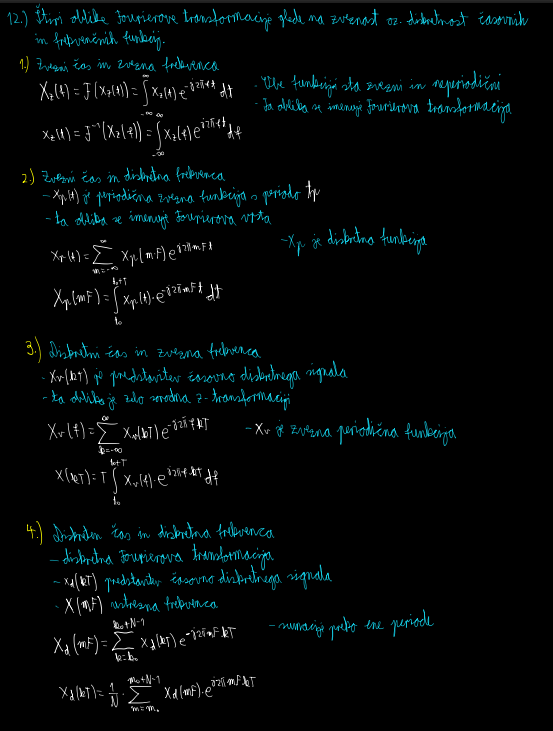 12.) Štiri oblike Fourierove transformacije glede na zveznost oz. diskretnost časovnih
in frekvenčnih funkcij.
1.) Zvezni čas in zvezna frekvenca
X_z(f) = F(x_z(t)) = ∫_{-∞}^{∞} x_z(t) e^{-j2πft} dt
- Obe funkciji sta zvezni in neperiodični
- Ta oblika se imenuje Fourierova transformacija
x_z(t) = F^{-1}(X_z(f)) = ∫_{-∞}^{∞} X_z(f) e^{j2πft} df
2.) Zvezni čas in diskretna frekvenca
- x_p(t) je periodična zvezna funkcija s periodo t_p
- ta oblika se imenuje Fourierova vrsta
x_p(t) = ∑_{m=-∞}^{∞} X_p(mF) e^{j2πmFt}
- X_p je diskretna funkcija
X_p(mF) = ∫_{t_0}^{t_0+T} x_p(t) · e^{-j2πmFt} dt
3.) Diskretni čas in zvezna frekvenca
- x_v(kT) je predstavitev časovno diskretnega signala
- ta oblika je zelo sorodna z-transformaciji
X_v(f) = ∑_{k=-∞}^{∞} x_v(kT) e^{-j2πfkT}
- X_v je zvezna periodična funkcija
X(kT) = T ∫_{t_0}^{t_0+T} X_v(f) · e^{j2πfkT} df
4.) Diskreten čas in diskretna frekvenca
- diskretna Fourierova transformacija
- x_d(kT) predstavitev časovno diskretnega signala
- X(mF) ustrezna frekvenca
X_d(mF) = ∑_{k=k_0}^{k_0+N-1} x_d(kT) e^{-j2πmFkT}
- sumacije preko ene periode
x_d(kT) = 1/N · ∑_{m=m_0}^{m_0+N-1} X_d(mF) · e^{j2πmFkT}